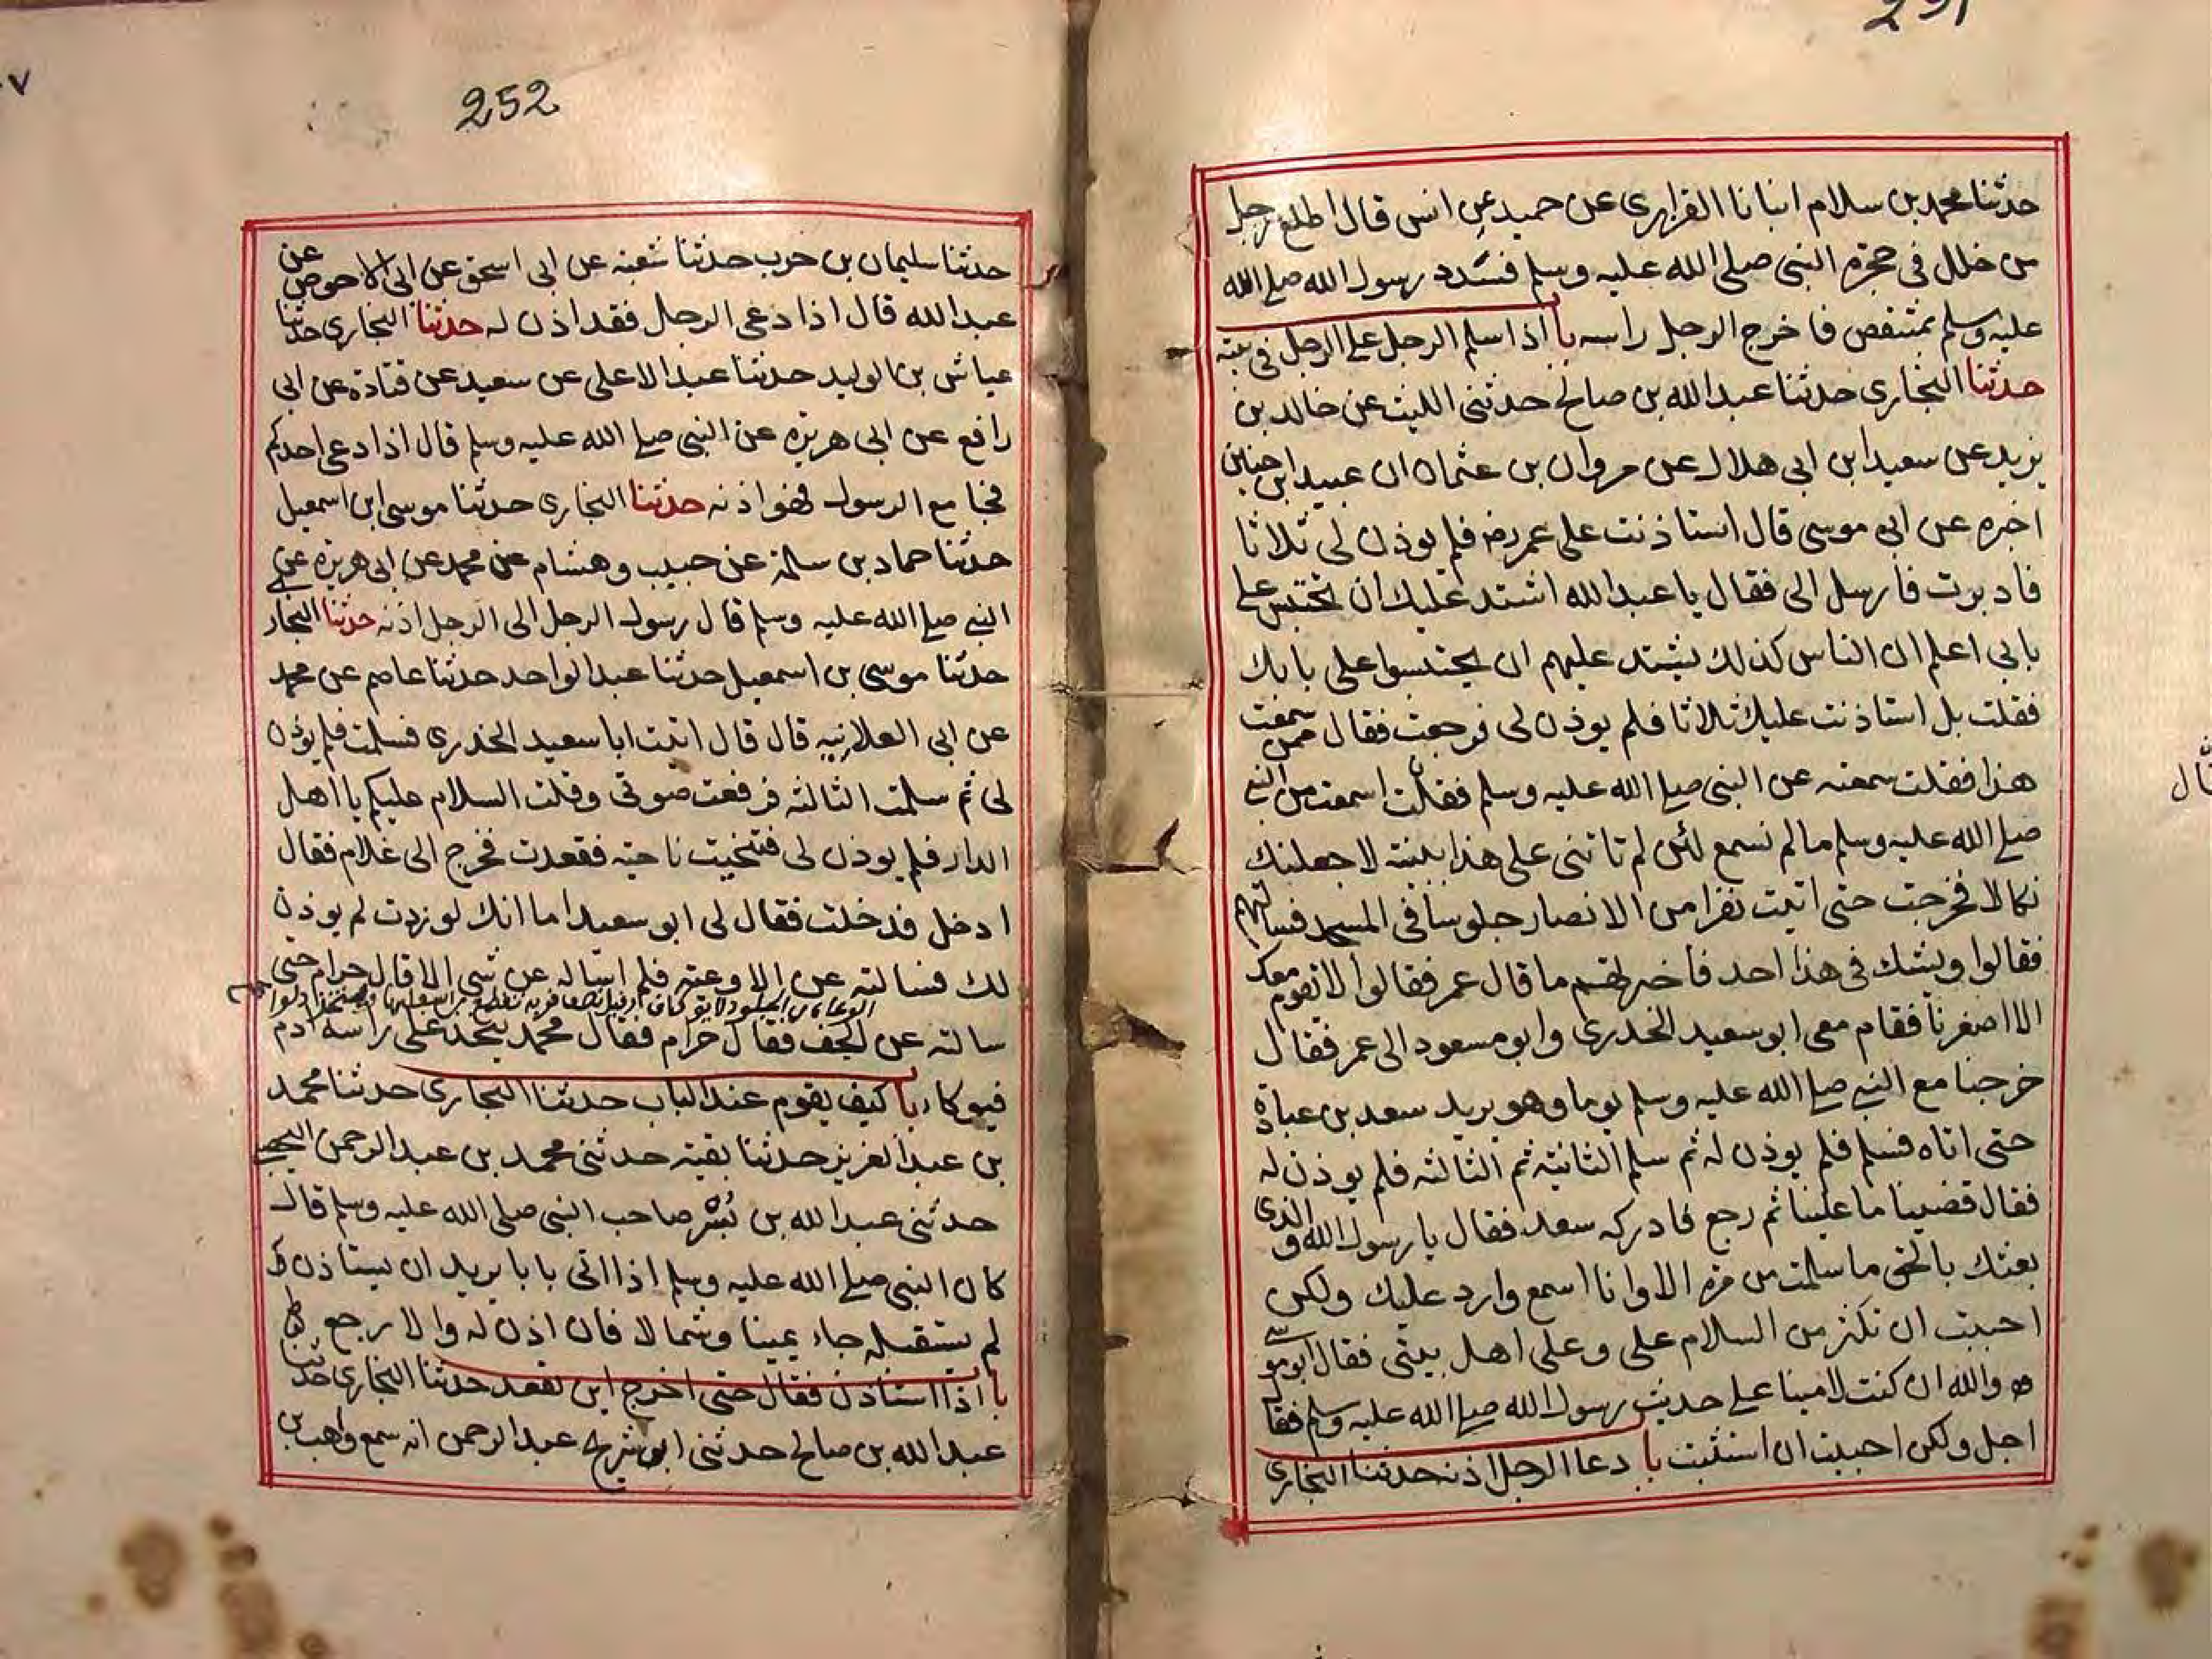 251
حدثنا محمد بن سلام انبانا الفزاري عن حميد عن انس قال اطلع رجل
من خلل في حجرة النبي صلى الله عليه وسلم فسدد رسول الله صلى الله
عليه وسلم بمشقص فاخرج الرجل راسه با اذا سلم الرجل على الرجل في بيته
حدثنا البخاري حدثنا عبد الله بن صالح حدثني الليث عن خالد بن
يزيد عن سعيد ابن ابي هلال عن مروان بن عثمان ان عبيد ابن حنين
اخبره عن ابي موسى قال استاذنت على عمر رضه فلم يوذن لي ثلاثا
فادبرت فارسل الى فقال يا عبد الله اشتد عليك ان تحتبس على
بابي اعلم ان الناس كذلك يشتد عليهم ان يحتبسوا على بابك
فقلت بل استاذنت عليك ثلاثا فلم يوذن لي فرجعت فقال ممن سمعت
هذا فقلت سمعته عن النبي صلى الله عليه وسلم فقلت اسمعت من النبي
صلى الله عليه وسلم ما لم نسمع لئن لم تاتني على هذا ببينة لاجعلنك
نكالا فخرجت حتى اتيت نفرا من الانصار جلوسا في المسجد فسالتهم
فقالوا ويشك في هذا احد فاخبرتهم ما قال عمر فقالوا لا يقوم معك
الا اصغرنا فقام معي ابو سعيد الخدري وابو مسعود الى عمر فقال
خرجنا مع النبي صلى الله عليه وسلم يوما وهو يريد سعد بن عبادة
حتى اتاه فسلم فلم يوذن له ثم سلم الثانية ثم الثالثة فلم يوذن له
فقال قضينا ما علينا ثم رجع فادركه سعد فقال يا رسول الله والذي
بعثك بالحق ما سلمت من مرة الا وانا اسمع وارد عليك ولكن
احببت ان تكثر من السلام علي وعلى اهل بيتي فقال ابو مو سى
والله ان كنت لامينا على حديث رسول الله صلى الله عليه وسلم فقال
اجل ولكن احببت ان استثبت با دعا الرجل اذنه حدثنا البخاري
252
حدثنا سليمان بن حرب حدثنا شعبه عن ابي اسحق عن ابي الاحوص عن
عبد الله قال اذا دعي الرجل فقد اذن له حدثنا البخاري حدثنا
عياش بن الوليد حدثنا عبد الاعلى عن سعيد عن قتادة عن ابي
رافع عن ابي هريره عن النبي صلى الله عليه وسلم قال اذا دعي احدكم
فجا مع الرسول فهو اذنه حدثنا البخاري حدثنا موسى ابن اسمعيل
حدثنا حماد بن سلمة عن حبيب وهشام عن محمد عن ابي هريرة عن
النبي صلى الله عليه وسلم قال رسول الرجل الى الرجل اذنه حدثنا البخار
حدثنا موسى بن اسمعيل حدثنا عبد الواحد حدثنا عاصم عن محمد
عن ابي العلانيه قال قال اتيت ابا سعيد الخدري فسلمت فلم يوذن
لي ثم سلمت الثالثه فرفعت صوتي وقلت السلام عليكم يا اهل
الدار فلم يوذن لي فتنحيت ناحيه فقعدت فخرج الى غلام فقال
ادخل فدخلت فقال لي ابو سعيد اما انك لو زدت لم يوذن
لك فسالته عن الاوعيه فلم اساله عن شي الا قال حرام حتى
سالته عن الجف فقال حرام فقال محمد يتخذ على راسه ادم
فيوكاء با كيف يقوم عند الباب حدثنا البخاري حدثنا محمد
بن عبد العزيز حدثنا بقيه حدثني محمد بن عبد الرحمن اليحصبي
حدثني عبد الله بن بُسْر صاحب النبي صلى الله عليه وسلم قال
كان النبي صلى الله عليه وسلم اذا اتى بابا يريد ان يستاذن
لم يستقبله جاء يمينا وشمالا فان اذن له والا رجع
با اذا استاذن فقال حتى اخرج اين يقعد حدثنا البخاري حدثنا
عبد الله بن صالح حدثني ابو شريح عبد الرحمن انه سمع واهب بن